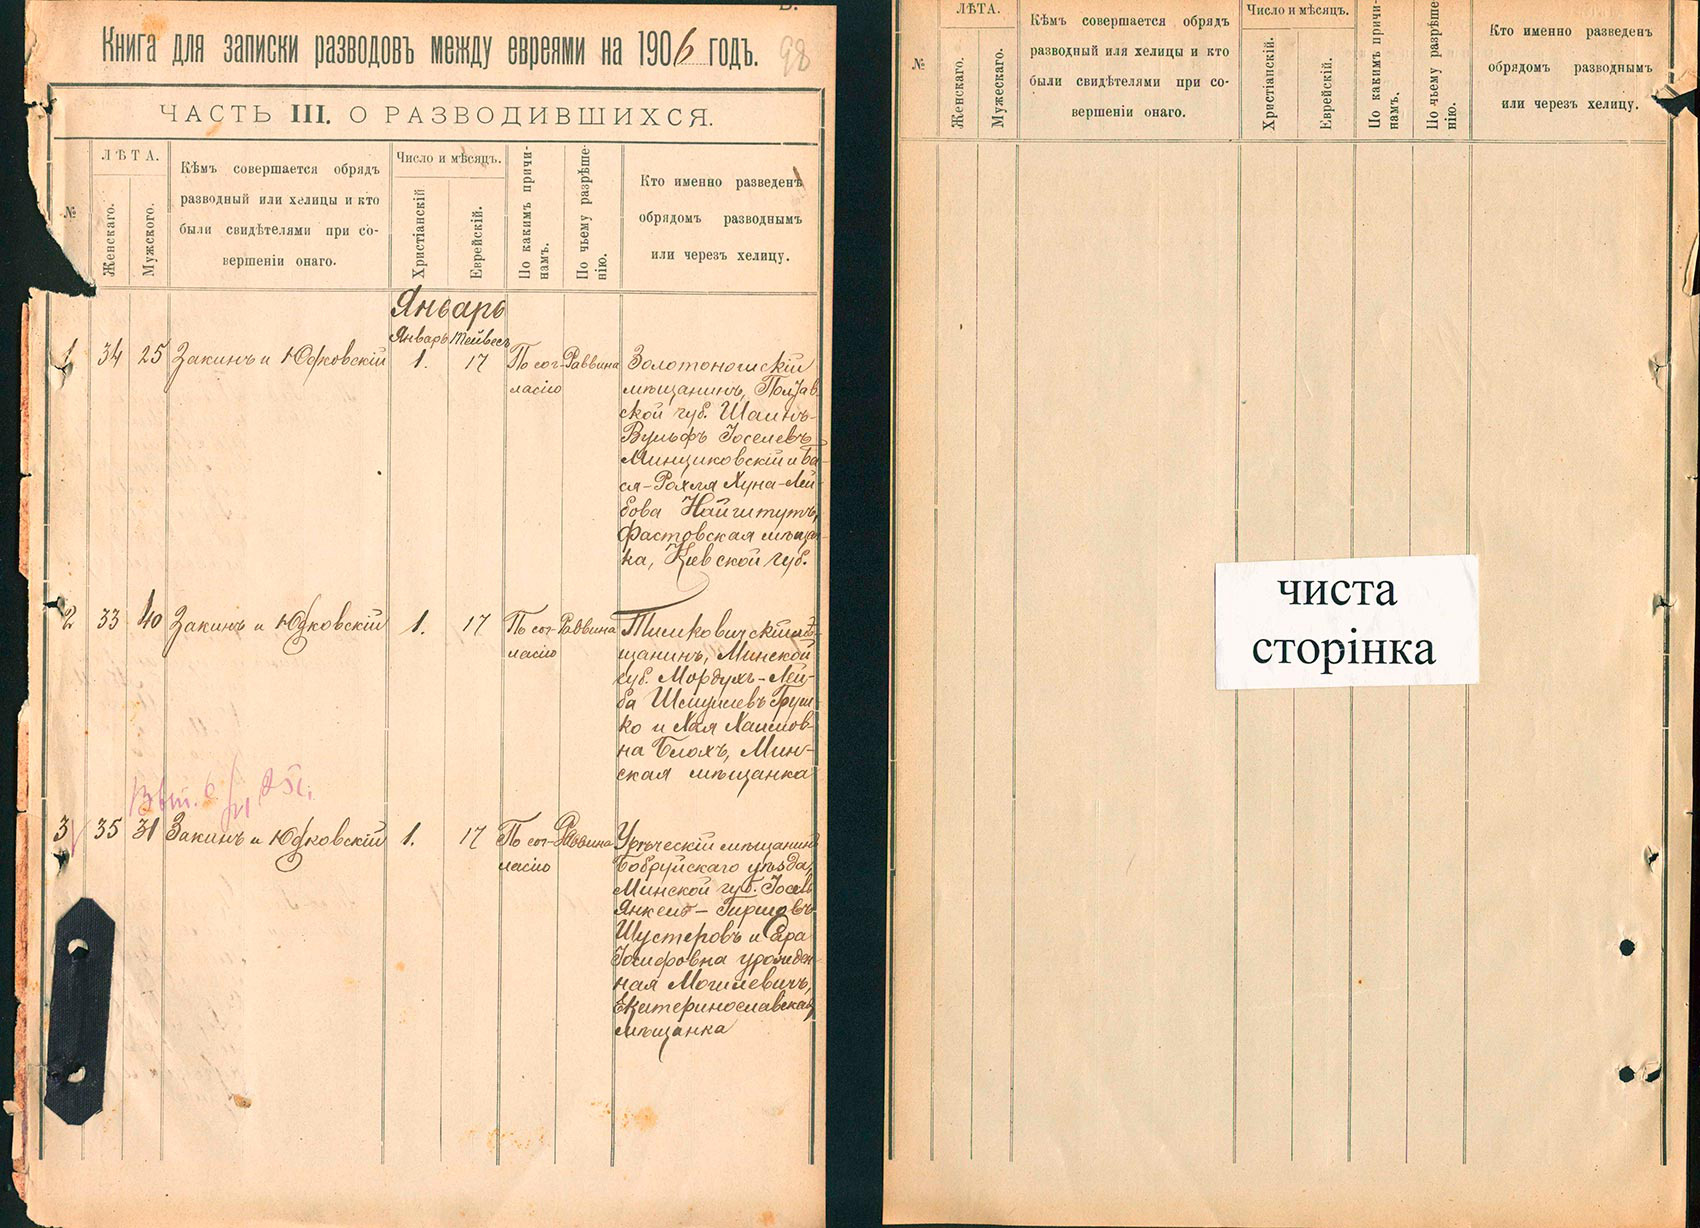 Книга для записки разводовъ между евреями на 1906 годъ.
98
ЧАСТЬ III. О РАЗВОДИВШИХСЯ.
№
ЛѢТА.
Женскаго.
Мужского.
Кѣмъ совершается обрядъ
разводный или хелицы и кто
были свидѣтелями при со-
вершеніи онаго.
Число и мѣсяцъ.
Христіанскій
Еврейскій.
По какимъ причи-
намъ.
По чьему разрѣше-
нію.
Кто именно разведенъ
обрядомъ разводнымъ
или черезъ хелицу.
Январь
Январь Тейвесъ
1 34 25 Закинъ и Юдковскій 1. 17 По сог- Раввина
ласію
Золотоношскій
мѣщанинъ, Полтав
ской губ.
Вульфъ Іоселевъ
Минциковскій и Ба-
ся-Рохля Хуна-Лей-
бова Найштутъ,
Фастовская мѣщан-
ка, Кіевской губ.
2 33 40 Закинъ и Юдковскій 1. 17 По сог- Раввина
ласію
щанинъ, Минской
губ. Мордухъ-Лей-
ба Шмуилевъ
ко и Хая Хаимов-
на Блохъ, Мин-
ская мѣщанка
3 35 31 Закинъ и Юдковскій 1. 17 По сог- Раввина
ласію
Уречскій мѣщанинъ
Бобруйскаго уѣзда,
Минской губ. Іосель
Янкель-Гиршовъ
Шустеровъ и Сора
Іосифовна урожден
ная Могилевичъ,
Екатеринославская
мѣщанка
№
ЛѢТА.
Женскаго.
Мужескаго.
Кѣмъ совершается обрядъ
разводный или хелицы и кто
были свидѣтелями при со-
вершеніи онаго.
Число и мѣсяцъ.
Христіанскій.
Еврейскій.
По какимъ причи-
намъ.
По чьему разрѣше
нію.
Кто именно разведенъ
обрядомъ разводнымъ
или черезъ хелицу.
чиста
сторінка